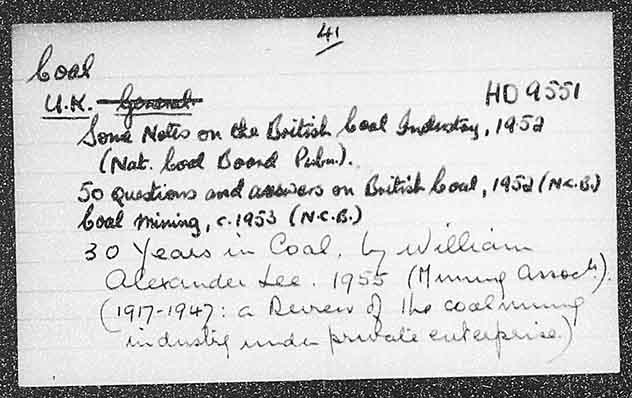 41
Coal
U.K. General HD 9551
Some Notes on the British Coal Industry, 1952
(Nat. Coal Board Pubn.).
50 questions and answers on British Coal, 1952 (N.C.B.)
Coal mining, c.1953 (N.C.B.)
30 Years in Coal, by William
Alexander Lee. 1955 (Mining Assoc.).
(1917-1947: a Review of the coalmining
industry under private enterprise.)